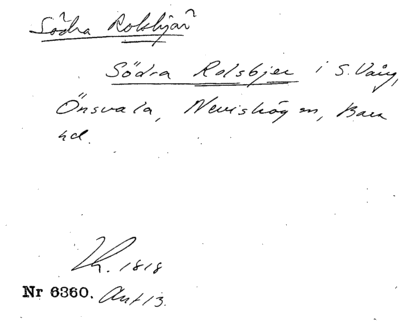 Södra Rolsbjär
Södra Rolsbjer i S. Vång,
Önsvala, Nevishög sn, Bara
hd.
Lh. 1818
Nr 6360. Ant 13.